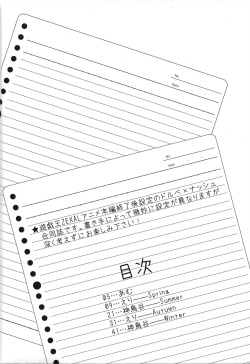 No.
Date
No.
Date
★遊戯王ZEXALアニメ本編終了後設定のドルベ×ナッシュ
合同誌です。書き手によって微妙に設定が異なりますが
深く考えずにお楽しみ下さい！
目次
05…あむ
09…えり――Spring
21…神鳥谷――Summer
31…えり――Autumn
41…神鳥谷――Winter